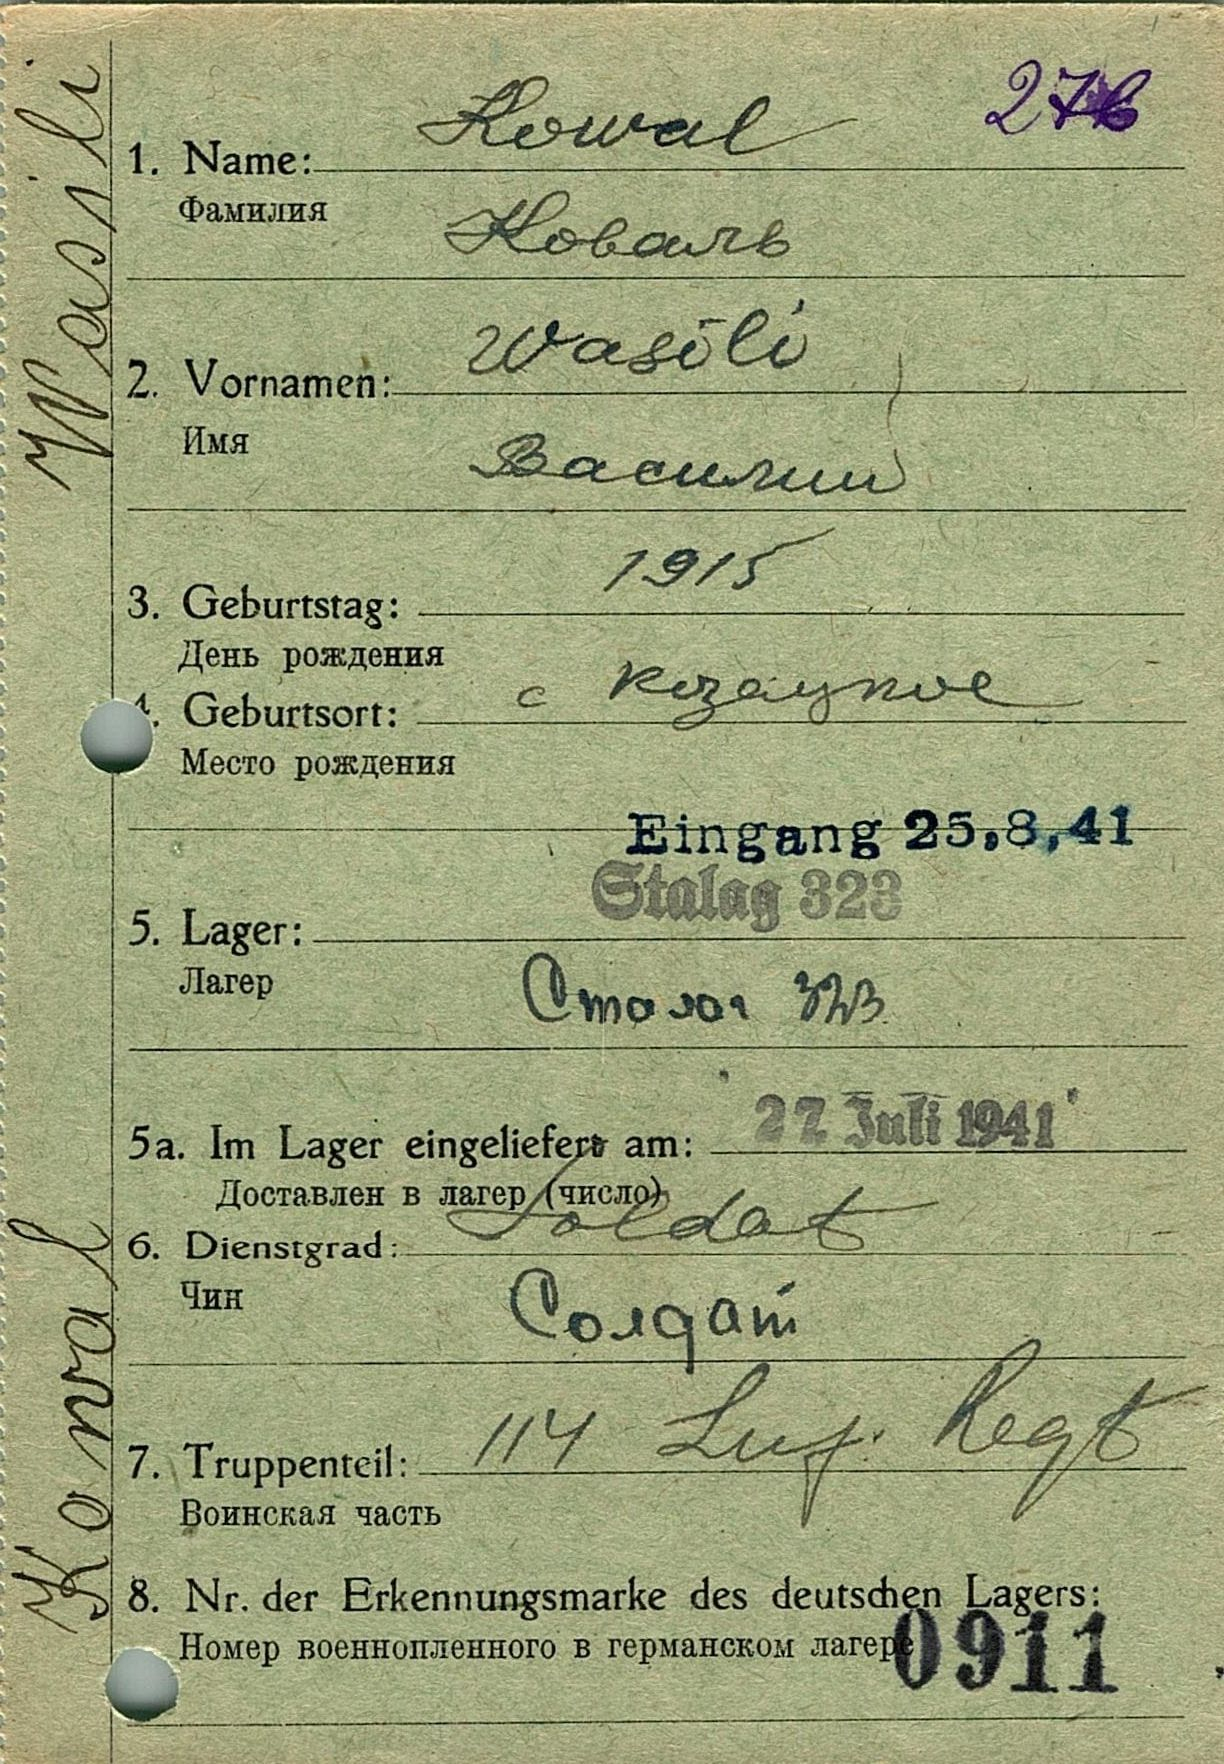 Kowal
1. Name:
Фамилия
Коваль
Wasili
2. Vornamen:
Имя
Василий
1915
3. Geburtstag:
День рождения
с Козацкое
4. Geburtsort:
Место рождения
Eingang 25.8.41
Stalag 323
5. Lager:
Лагер
Сталаг 323
27. Juli 1941
5a. Im Lager eingeliefert am:
Доставлен в лагер (число)
Soldat
6. Dienstgrad:
Чин
Солдат
114 Inf. Regt
7. Truppenteil:
Воинская часть
8. Nr. der Erkennungsmarke des deutschen Lagers:
Номер военнопленного в германском лагере
0911
Kowal Wasili